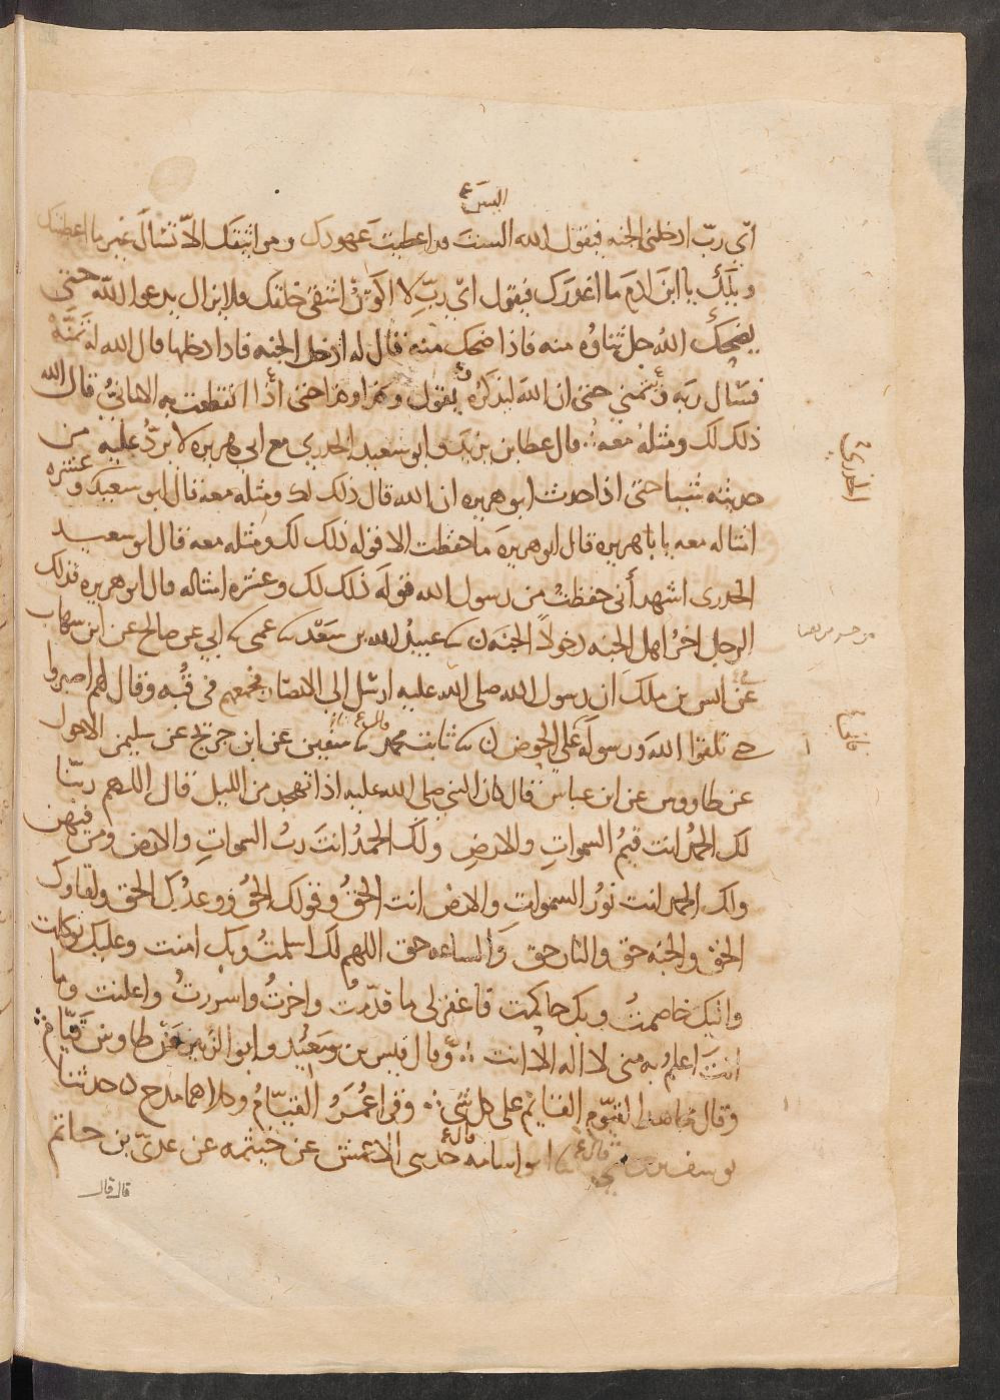 اليس ع
اي رب ادخلني الجنه فيقول الله الست قد اعطيت عهودك ومواثيقك الا تسال غير ما اعطيتك
ويلك يا ابن ادم ما اغدرك فيقول اي رب لا اكونن اشقى خلقك فلا يزال يدعوا الله حتى
يضحك الله جل ثناوه منه فاذا ضحك منه قال له ادخل الجنه فاذا دخلها قال الله له تمنه
فسال ربه وتمنى حتى ان الله ليذكره يقول وكذا وكذا حتى اذا انقطعت به الاماني قال الله
ذلك لك ومثله معه قال عطا بن يزيد وابو سعيد الخدري مع ابي هريره لا يرد عليه من
حديثه شيا حتى اذا حدث ابو هريره ان الله قال ذلك لك ومثله معه قال ابو سعيد وعشره
امثاله معه يا با هريره قال ابو هريره ما حفظت الا قوله ذلك لك ومثله معه قال ابو سعيد
الخدرى اشهد أني حفظت من رسول الله قوله ذلك لك وعشره امثاله قال ابو هريره فذلك
الرجل اخر اهل الجنه دخولا الجنه ن عبيد الله بن سعد عمي ابي عن صالح عن ابن شهاب
عن انس بن ملك ان رسول الله صلى الله عليه ارسل الى الانصار فجمعهم في قبه وقال لهم اصبروا
حتى تلقوا الله ورسوله فاني على الحوض ن ثابت بن محمد سفين عن ابن جريج عن سليمن الاحول
عن طاووس عن ابن عباس قال كان النبي صلى الله عليه اذا تهجد من الليل قال اللهم ربنا
لك الحمد انت قيم السموات والارض ولك الحمد انت رب السموات والارض ومن فيهن
ولك الحمد انت نور السموات والارض انت الحق وقولك الحق ووعدك الحق ولقاوك
الحق والجنه حق والنار حق والساعه حق اللهم لك اسلمت وبك امنت وعليك توكلت
واليك خاصمت وبك حاكمت فاغفر لي ما قدمت وما اخرت واسررت واعلنت وما
انت اعلم به مني لا اله الا انت وقال قيس بن سعد وابو الزبير عن طاوس قيام
وقال مجاهد القيوم القايم على كل شي وقرا عمر القيام وكلاهما مدح ن حدثنا
يوسف بن موسى ابو اسامه حدثني الاعمش عن خيثمه عن عدي بن حاتم
قال قال
الخدري